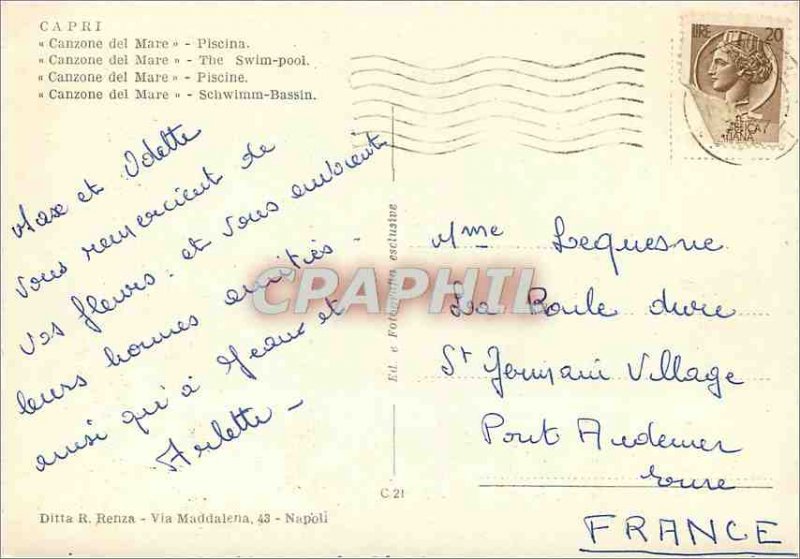 CAPRI
« Canzone del Mare » - Piscina.
« Canzone del Mare » - The Swim-pool.
« Canzone del Mare » - Piscine.
« Canzone del Mare » - Schwimm-Bassin.
LIRE 20
Max et Odette
vous remercient de
vos fleurs. et vous envoient
leurs bonnes amitiés
ainsi qu'à Jeanne et
Arlette -
Ed. e Fotografia esclusive
CPAPHIL
Mme Lequesne
La Boule dure
St Germain Village
Pont Audemer
Eure
FRANCE
C 21
Ditta R. Renza - Via Maddalena, 43 - Napoli